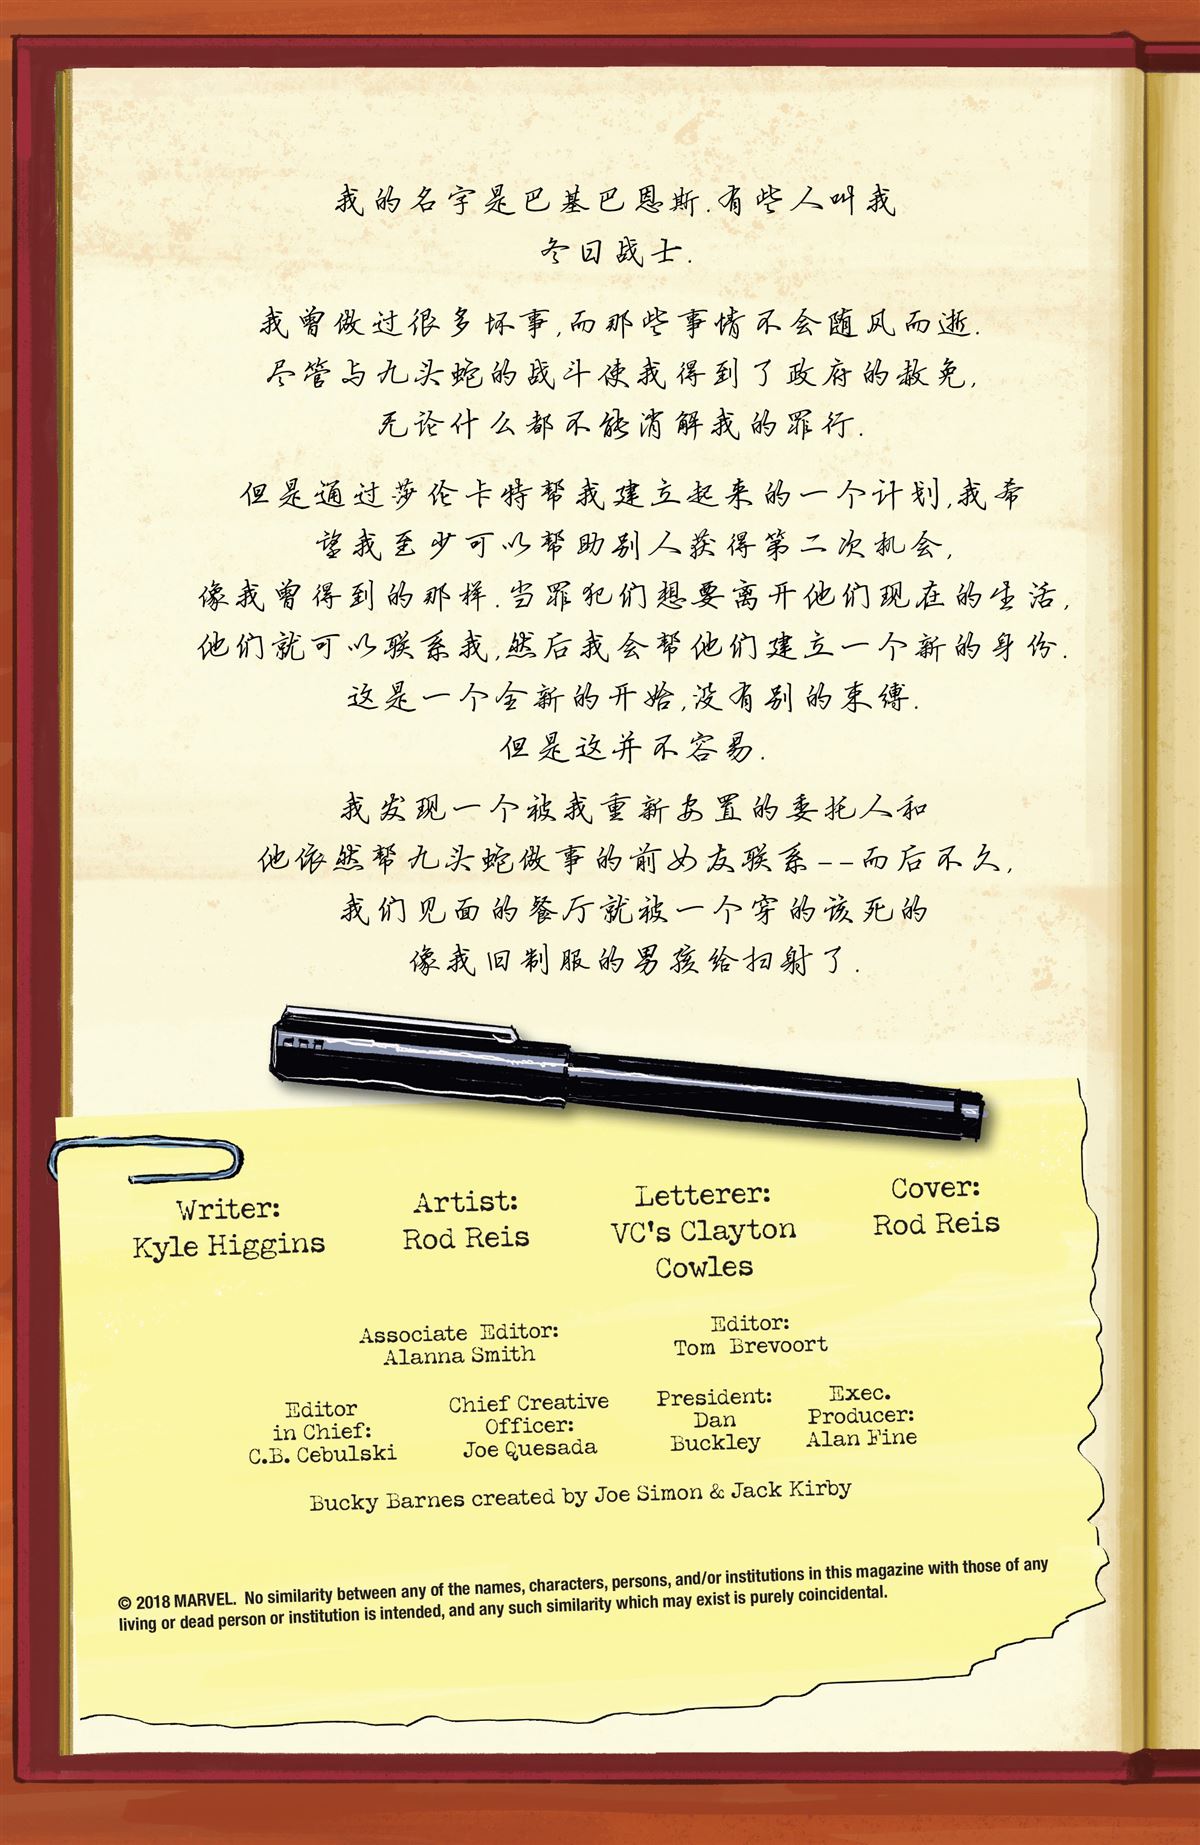 我的名字是巴基巴恩斯.有些人叫我
冬日战士.
我曾做过很多坏事,而那些事情不会随风而逝.
尽管与九头蛇的战斗使我得到了政府的赦免,
无论什么都不能消解我的罪行.
但是通过莎伦卡特帮我建立起来的一个计划,我希
望我至少可以帮助别人获得第二次机会,
像我曾得到的那样.当罪犯们想要离开他们现在的生活,
他们就可以联系我,然后我会帮他们建立一个新的身份.
这是一个全新的开始,没有别的束缚.
但是这并不容易.
我发现一个被我重新安置的委托人和
他依然帮九头蛇做事的前女友联系--而后不久,
我们见面的餐厅就被一个穿的该死的
像我旧制服的男孩给扫射了.
Writer:
Kyle Higgins
Artist:
Rod Reis
Letterer:
VC's Clayton
Cowles
Cover:
Rod Reis
Associate Editor:
Alanna Smith
Editor:
Tom Brevoort
Editor
in Chief:
C.B. Cebulski
Chief Creative
Officer:
Joe Quesada
President:
Dan
Buckley
Exec.
Producer:
Alan Fine
Bucky Barnes created by Joe Simon & Jack Kirby
© 2018 MARVEL. No similarity between any of the names, characters, persons, and/or institutions in this magazine with those of any
living or dead person or institution is intended, and any such similarity which may exist is purely coincidental.